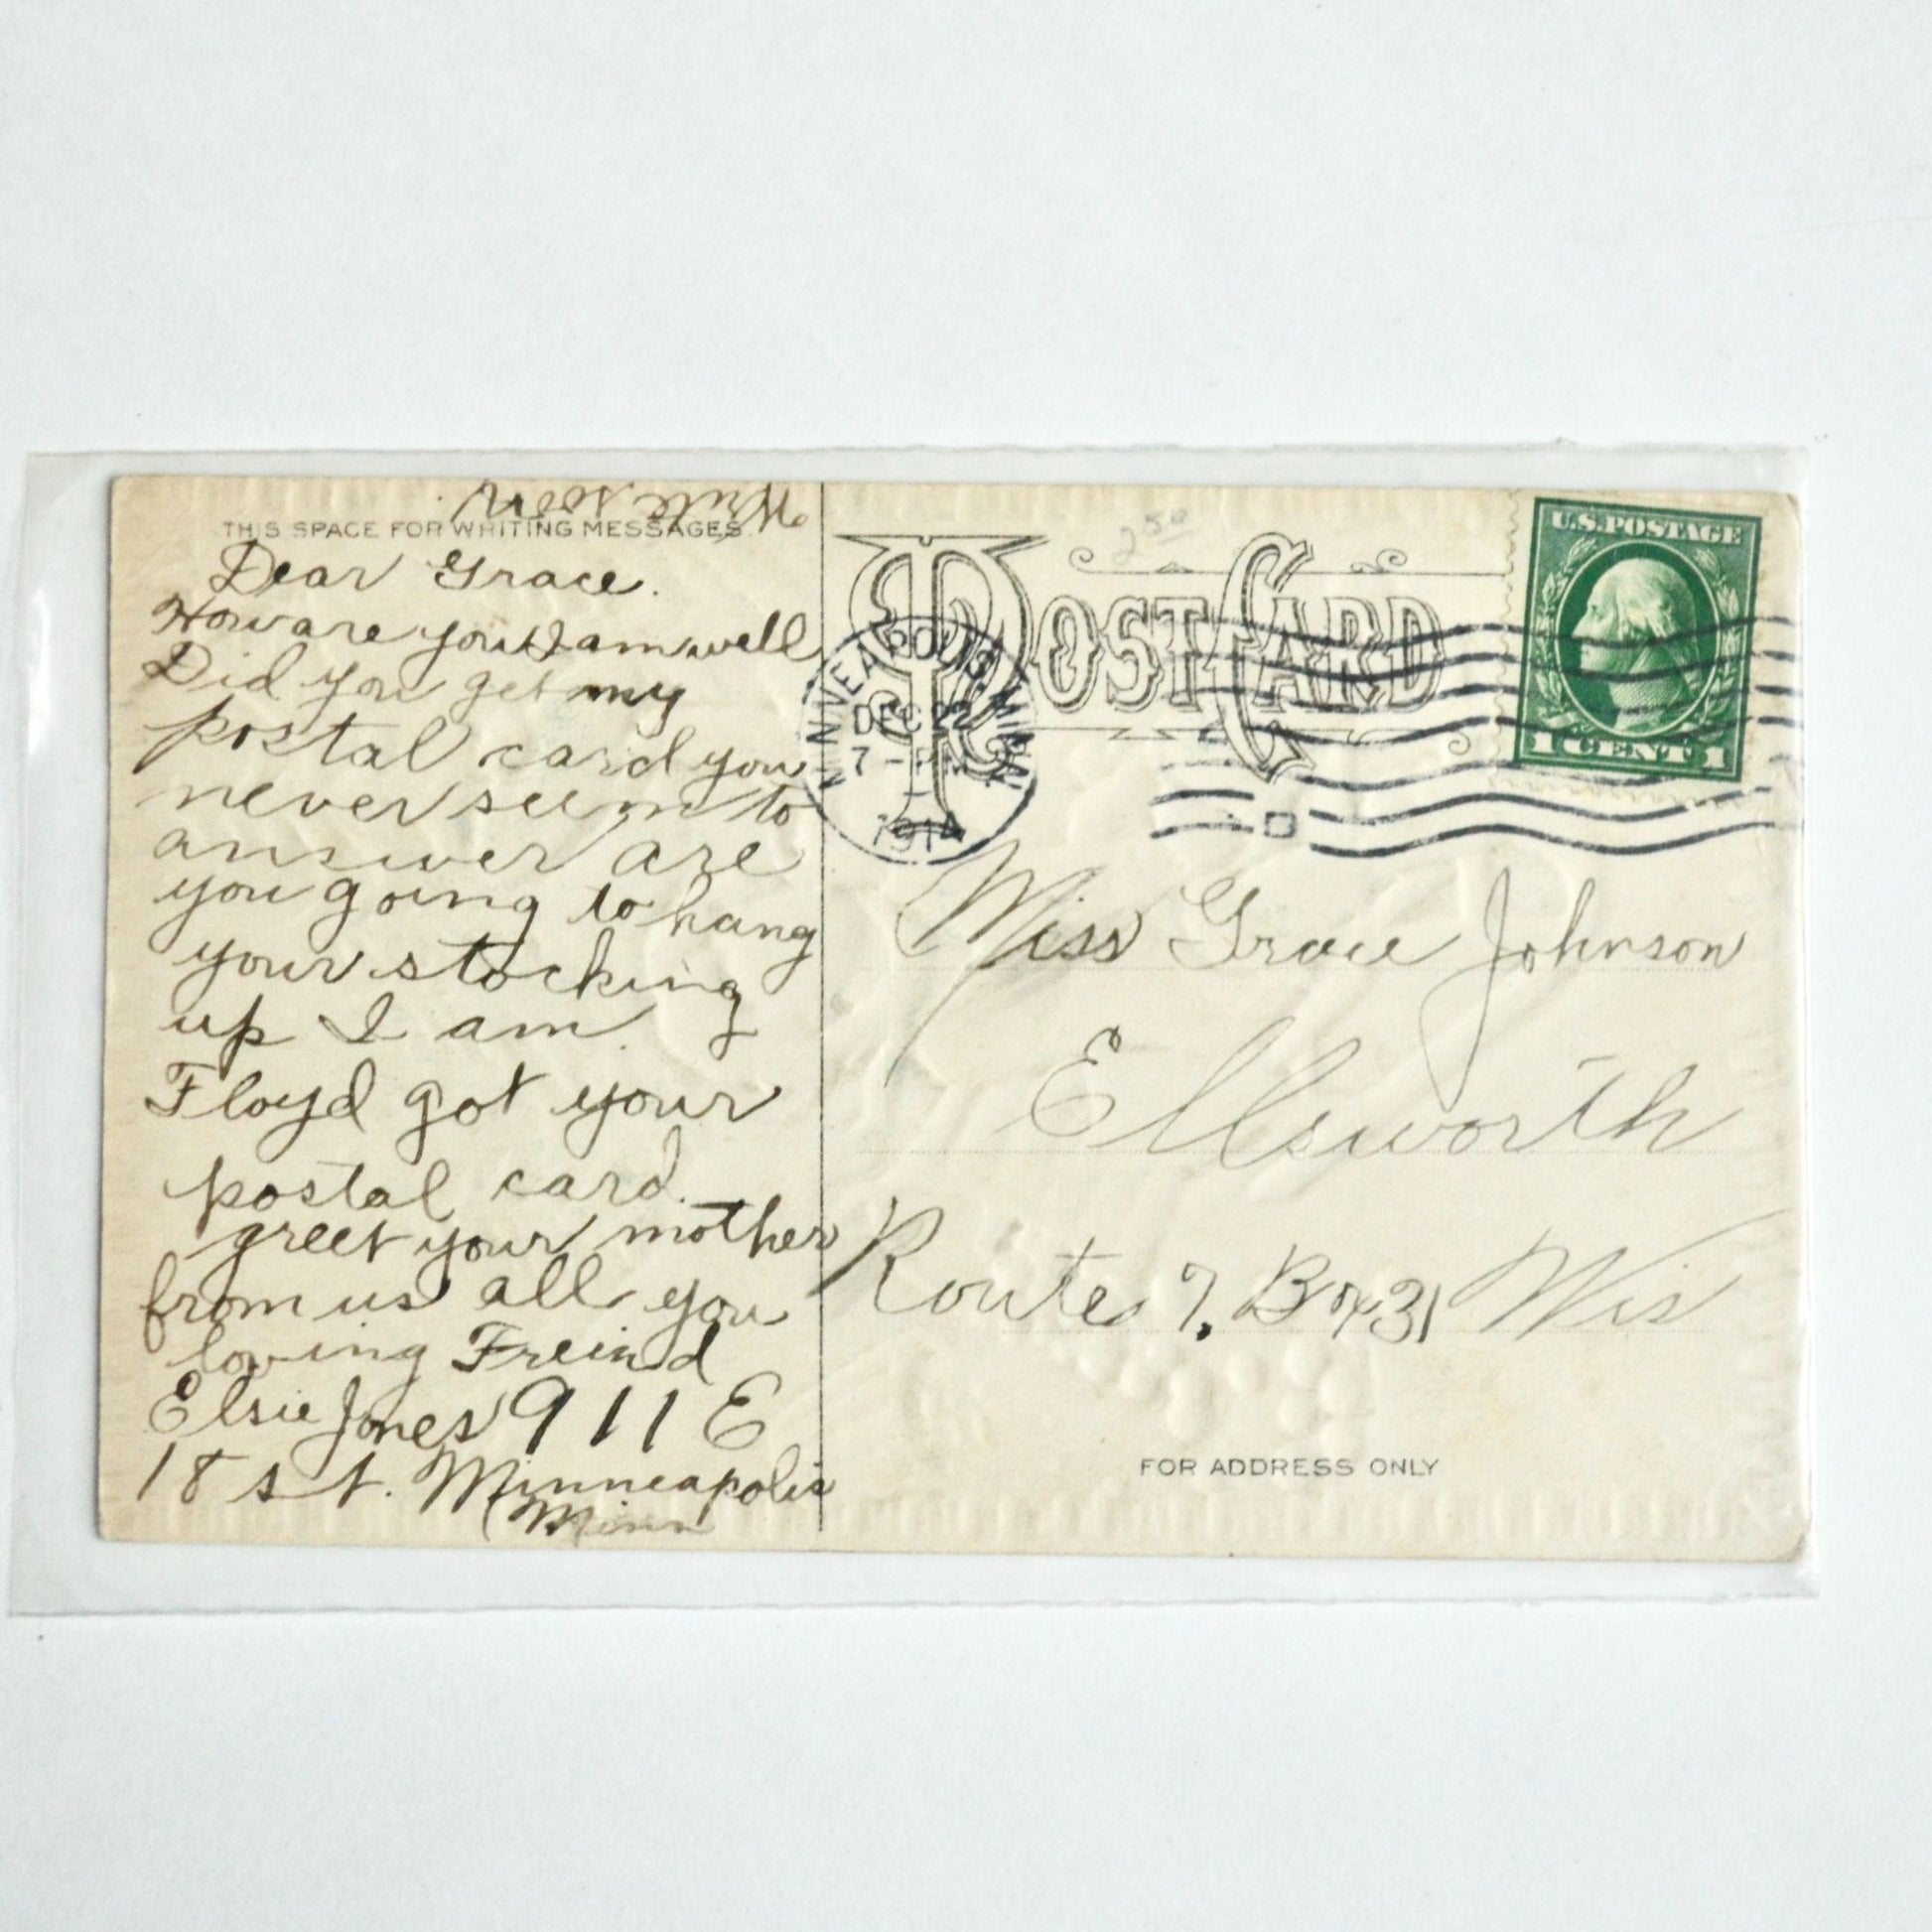 Write soon.
THIS SPACE FOR WRITING MESSAGES
Dear Grace.
How are you I am well
Did you get my
postal card you
never seem to
answer are
you going to hang
your stocking
up I am.
Floyd got your
postal card.
greet your mother
from us all you
loving Freind
Elsie Jones 911 E
18 st. Minneapolis
Minn
POST CARD
2 50
MINNEAPOLIS, MINN.
DEC 22
7 - PM
1914
D
U.S. POSTAGE
1 CENT 1
Miss Grace Johnson
Ellsworth
Route 7. Box 31 Wis
FOR ADDRESS ONLY